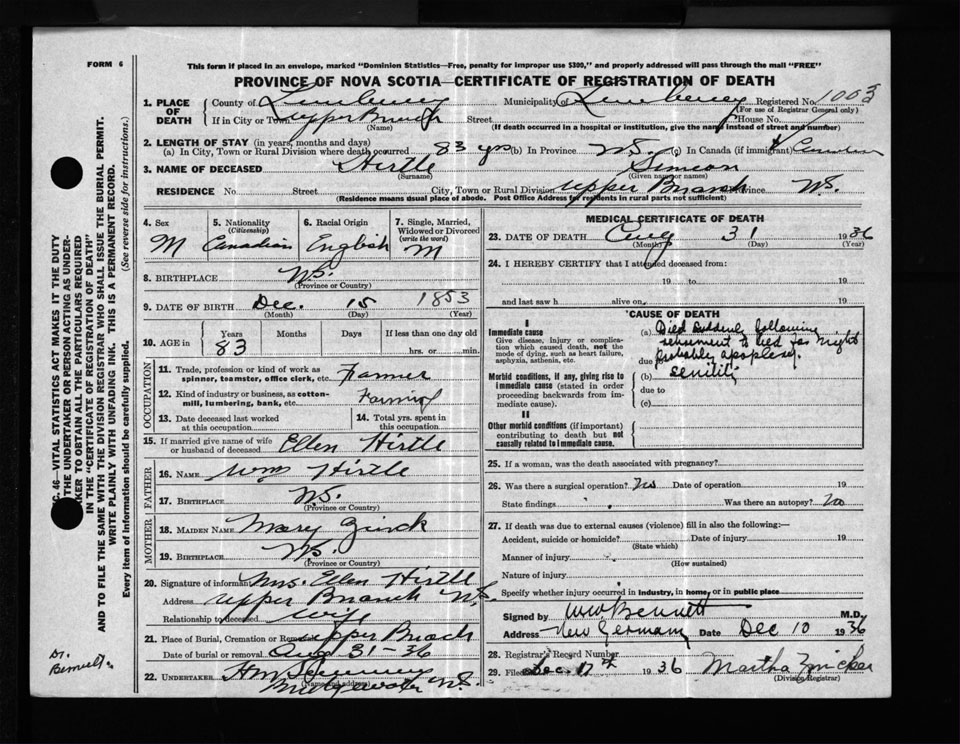 FORM 6
This form if placed in an envelope, marked "Dominion Statistics—Free, penalty for improper use $300," and properly addressed will pass through the mail "FREE"
PROVINCE OF NOVA SCOTIA—CERTIFICATE OF REGISTRATION OF DEATH
1. PLACE OF DEATH County of Lunenburg Municipality of Lunenburg Registered No.
(For use of Registrar General only)
If in City or Town Upper Branch Street House No.
(Name) (If death occurred in a hospital or institution, give the name instead of street and number)
2. LENGTH OF STAY (in years, months and days)
(a) In City, Town or Rural Division where death occurred 83 yrs (b) In Province N.S. (c) In Canada (if immigrant) Canadian
3. NAME OF DECEASED Hirtle Simeon
(Surname) (Given name or names)
RESIDENCE No. Street City, Town or Rural Division Upper Branch Province N.S.
(Residence means usual place of abode. Post Office Address for residents in rural parts not sufficient)
4. Sex M
5. Nationality (Citizenship) Canadian
6. Racial Origin English
7. Single, Married, Widowed or Divorced (write the word) M
8. BIRTHPLACE N.S.
(Province or Country)
9. DATE OF BIRTH Dec. 15 1853
(Month) (Day) (Year)
10. AGE in Years 83 Months Days If less than one day old
hrs. or min.
OCCUPATION
11. Trade, profession or kind of work as spinner, teamster, office clerk, etc. Farmer
12. Kind of industry or business, as cotton-mill, lumbering, bank, etc. Farming
13. Date deceased last worked at this occupation
14. Total yrs. spent in this occupation
15. If married give name of wife or husband of deceased Ellen Hirtle
FATHER
16. NAME Wm Hirtle
17. BIRTHPLACE N.S.
(Province or Country)
MOTHER
18. MAIDEN NAME Mary Zinck
19. BIRTHPLACE N.S.
(Province or Country)
20. Signature of informant Mrs. Ellen Hirtle
Address Upper Branch N.S.
Relationship to deceased wife
21. Place of Burial, Cremation or Removal Upper Branch
Date of burial or removal Aug 31-36
22. UNDERTAKER
Bridgewater N.S.
(Name and address)
MEDICAL CERTIFICATE OF DEATH
23. DATE OF DEATH Aug 31 1936
(Month) (Day) (Year)
24. I HEREBY CERTIFY that I attended deceased from:
19 to 19
and last saw h alive on 19
CAUSE OF DEATH
I
Immediate cause
Give disease, injury or complication which caused death, not the mode of dying, such as heart failure, asphyxia, asthenia, etc.
(a) Died suddenly following
retirement to bed for night
due probably apoplexy
Morbid conditions, if any, giving rise to immediate cause (stated in order proceeding backwards from immediate cause).
(b) senility
due to
(c)
II
Other morbid conditions (if important) contributing to death but not causally related to immediate cause.
25. If a woman, was the death associated with pregnancy?
26. Was there a surgical operation? Yes Date of operation 19
State findings Was there an autopsy? no
27. If death was due to external causes (violence) fill in also the following:—
Accident, suicide or homicide? Date of injury 19
(State which)
Manner of injury
(How sustained)
Nature of injury
Specify whether injury occurred in industry, in home, or in public place
Signed by W W Bennett M.D.
Address New Germany Date Dec 10 1936
28. Registrar's Record Number
29. Filed Dec. 17th 1936 Martha Zwicker
(Division Registrar)
46—VITAL STATISTICS ACT MAKES IT THE DUTY
THE UNDERTAKER OR PERSON ACTING AS UNDER-
KER TO OBTAIN ALL THE PARTICULARS REQUIRED
IN THE "CERTIFICATE OF REGISTRATION OF DEATH"
AND TO FILE THE SAME WITH THE DIVISION REGISTRAR WHO SHALL ISSUE THE BURIAL PERMIT.
WRITE PLAINLY WITH UNFADING INK. THIS IS A PERMANENT RECORD.
Every item of information should be carefully supplied. (See reverse side for instructions.)
Dr.